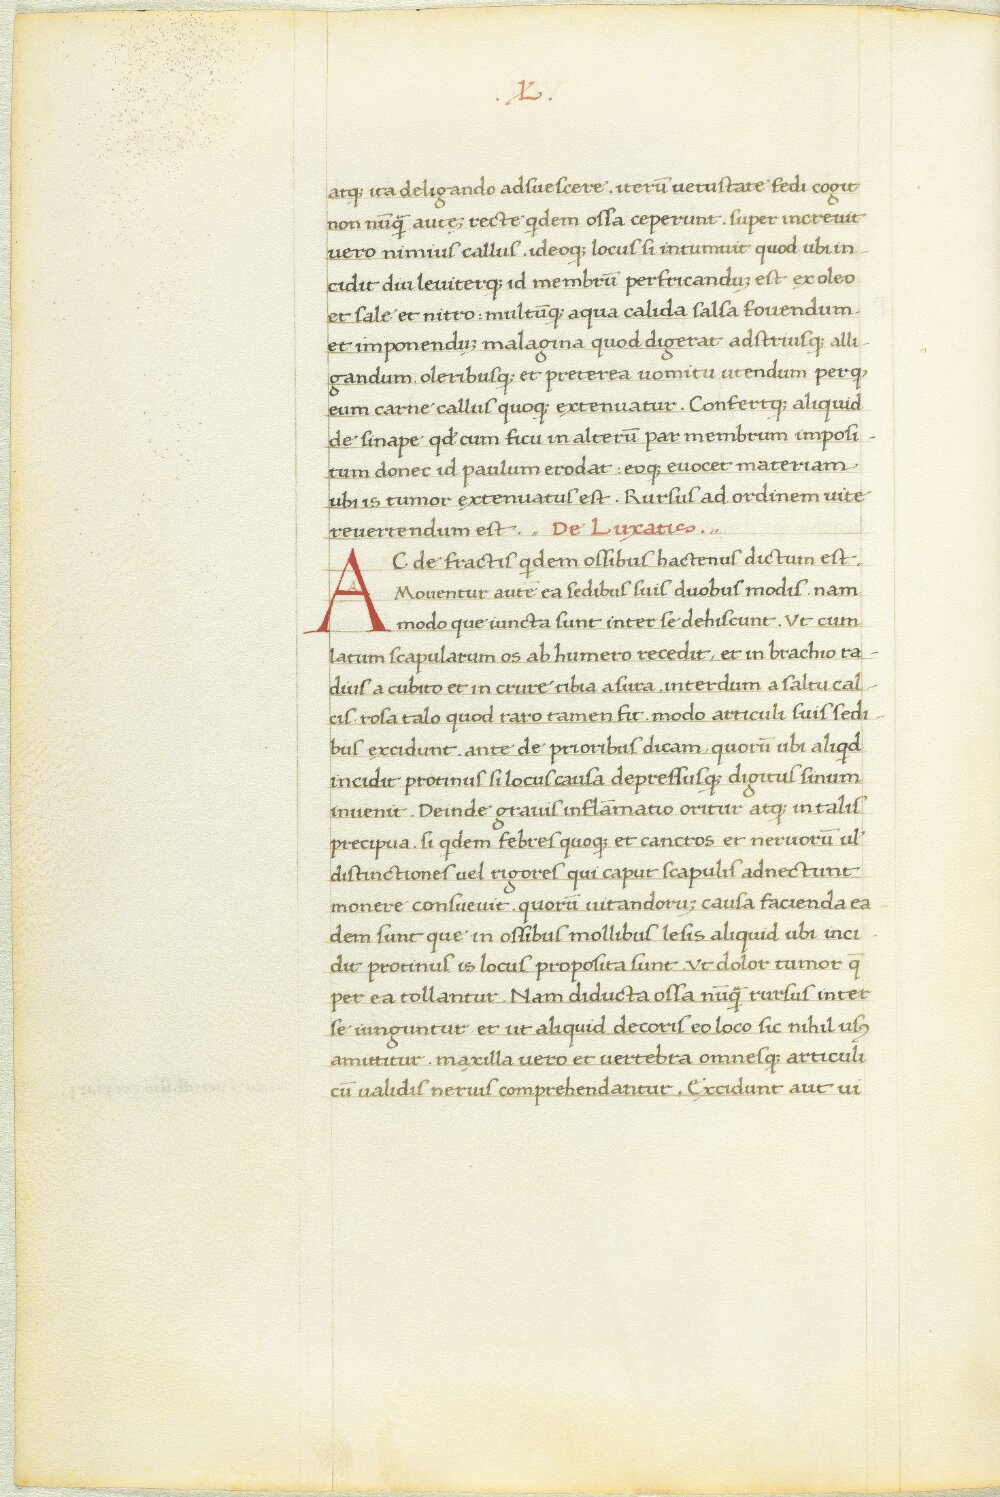 . XL .
atq; ita deligando adsuescere . iterū uetustate sedi cogit
non nūq̄ autez recte qdem ossa ceperunt . super increuit
uero nimius callus . ideoq; locus si intumuit quod ubi in-
cidit diu leuiterq; id membrū perfricanduz est ex oleo
et sale et nitro : multūq; aqua calida salsa fouendum-
et imponenduz malagina quod digerat adstriusq; alli-
gandum oleribusq; et preterea uomitu utendum perq
eum carne callus quoq; extenuatur . Confertq; aliquid
de sinape qđ cum ficu in alterū par membrum imposi-
tum donec id paulum erodat : eoq; euocet materiam
ubi is tumor extenuatus est . Rursus ad ordinem uite
reuertendum est . ,, De Luxatis . ,,
AC de fractis qdem ossibus hactenus dictum est .
Mouentur autē ea sedibus suis duobus modis . nam
modo que iuncta sunt inter se dehiscunt . Vt cum
latum scapularum os ab humero recedit , et in brachio ra-
dius a cubito et in crure tibia a sura . interdum a saltu cal-
cis . rosa talo quod raro tamen fit . modo articuli suis sedi-
bus excidunt . ante de prioribus dicam , quorū ubi aliqd
incidit protinus si locus causa depressusq; digitus sinum
inuenit . Deinde grauis inflāmatio oritur atq; in talis
precipua . si qdem febres quoq; et cancros et neruorū ul'
distinctiones uel rigores qui caput scapulis adnectunt
monere consueuit . quorū uitandoruz causa facienda ea
dem sunt que in ossibus mollibus lesis aliquid ubi inci-
dit protinus is locus proposita sunt . Vt dolor tumor q̄
per ea tollantur . Nam diducta ossa nūq̄ rursus inter
se iunguntur et ut aliquid decoris eo loco sic nihil us9
amittitur . maxilla uero et uertebra omnesq; articuli
cū ualidis neruis comprehendantur . Excidunt aut ui